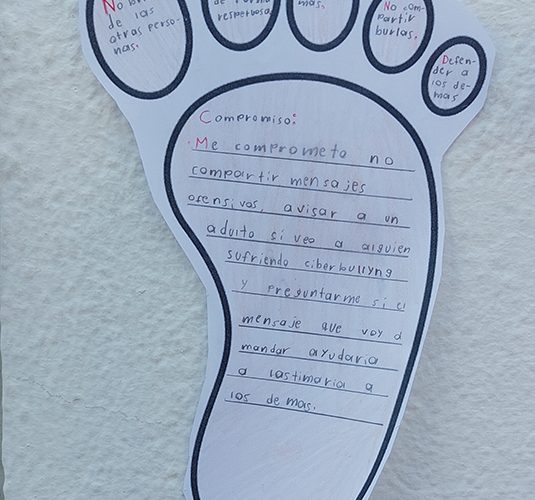 No
de las
otras perso-
nas.
de forma
respetuosa
mas.
No com-
partir
burlas.
Defen-
der a
los de-
mas
Compromiso:
Me comprometo no
compartir mensajes
ofensivos, avisar a un
adulto si veo a alguien
sufriendo ciberbullyng
y preguntarme si el
mensaje que voy a
mandar ayudaria
o lastimaria a
los demas.